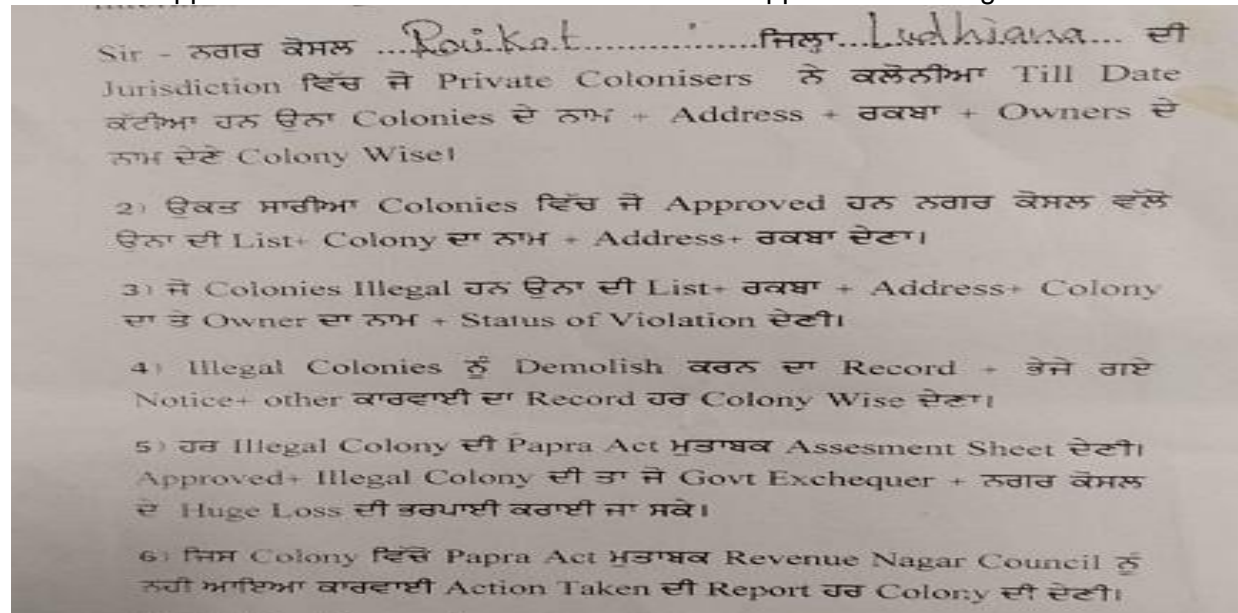 Sir - ਨਗਰ ਕੋਸਲ ...Raikot..............ਜਿਲ੍ਹਾ...Ludhiana... ਦੀ
Jurisdiction ਵਿੱਚ ਜੋ Private Colonisers ਨੇ ਕਲੋਨੀਆ Till Date
ਕੱਟੀਆ ਹਨ ਉਨਾ Colonies ਦੇ ਨਾਮ + Address + ਰਕਬਾ + Owners ਦੇ
ਨਾਮ ਦੇਣੇ Colony Wise।
2) ਉਕਤ ਸਾਰੀਆ Colonies ਵਿੱਚ ਜੋ Approved ਹਨ ਨਗਰ ਕੋਸਲ ਵੱਲੋ
ਉਨਾ ਦੀ List+ Colony ਦਾ ਨਾਮ + Address+ ਰਕਬਾ ਦੇਣਾ।
3) ਜੋ Colonies Illegal ਹਨ ਉਨਾ ਦੀ List+ ਰਕਬਾ + Address+ Colony
ਦਾ ਤੇ Owner ਦਾ ਨਾਮ + Status of Violation ਦੇਣੀ।
4) Illegal Colonies ਨੂੰ Demolish ਕਰਨ ਦਾ Record + ਭੇਜੇ ਗਏ
Notice+ other ਕਾਰਵਾਈ ਦਾ Record ਹਰ Colony Wise ਦੇਣਾ।
5) ਹਰ Illegal Colony ਦੀ Papra Act ਮੁਤਾਬਕ Assesment Sheet ਦੇਣੀ।
Approved+ Illegal Colony ਦੀ ਤਾ ਜੋ Govt Exchequer + ਨਗਰ ਕੋਸਲ
ਦੇ Huge Loss ਦੀ ਭਰਪਾਈ ਕਰਾਈ ਜਾ ਸਕੇ।
6) ਜਿਸ Colony ਵਿੱਚੋ Papra Act ਮੁਤਾਬਕ Revenue Nagar Council ਨੂੰ
ਨਹੀ ਆਇਆ ਕਾਰਵਾਈ Action Taken ਦੀ Report ਹਰ Colony ਦੀ ਦੇਣੀ।